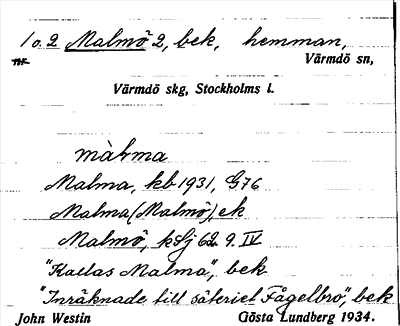 1 o. 2 Malmö 2, bek, hemman,
nr Värmdö sn,
Värmdö skg, Stockholms l.
màlma
Malma, kb 1931, G76
Malma (Malmö), ek
Malmö, k 62 9. IV
"Kallas Malma", bek
"Inräknade till säteriet Fågelbro", bek
John Westin Gösta Lundberg 1934.